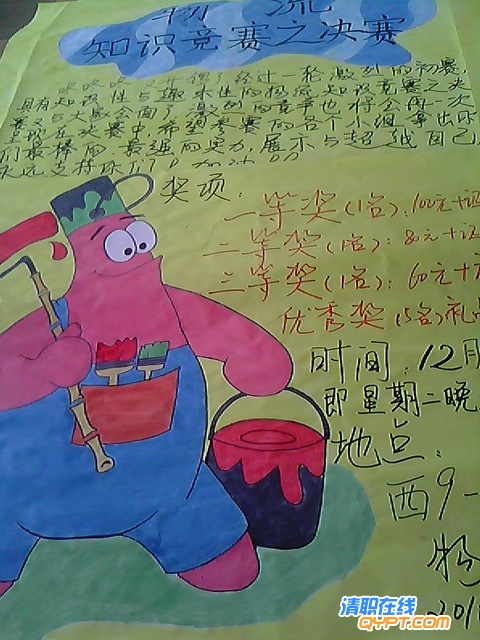 物 流
知识竞赛之决赛
咚咚咚 又开锣了 经过一轮激烈的初赛,
具有知识性与趣味性的物流知识竞赛之决
赛又与大家会面了 激烈的竞争也将会再一次
上现 在决赛中,希望参赛的各个小组拿出你
们最棒的 最强的实力,展示与超越自己
永远支持你们
奖项:
一等奖(1名):100元+证
二等奖(1名):80元+证
三等奖(1名):60元+
优秀奖(5名)礼品
时间:12月
即星期二晚
地点:
西9-
物
201
清职在线
QYPT.COM